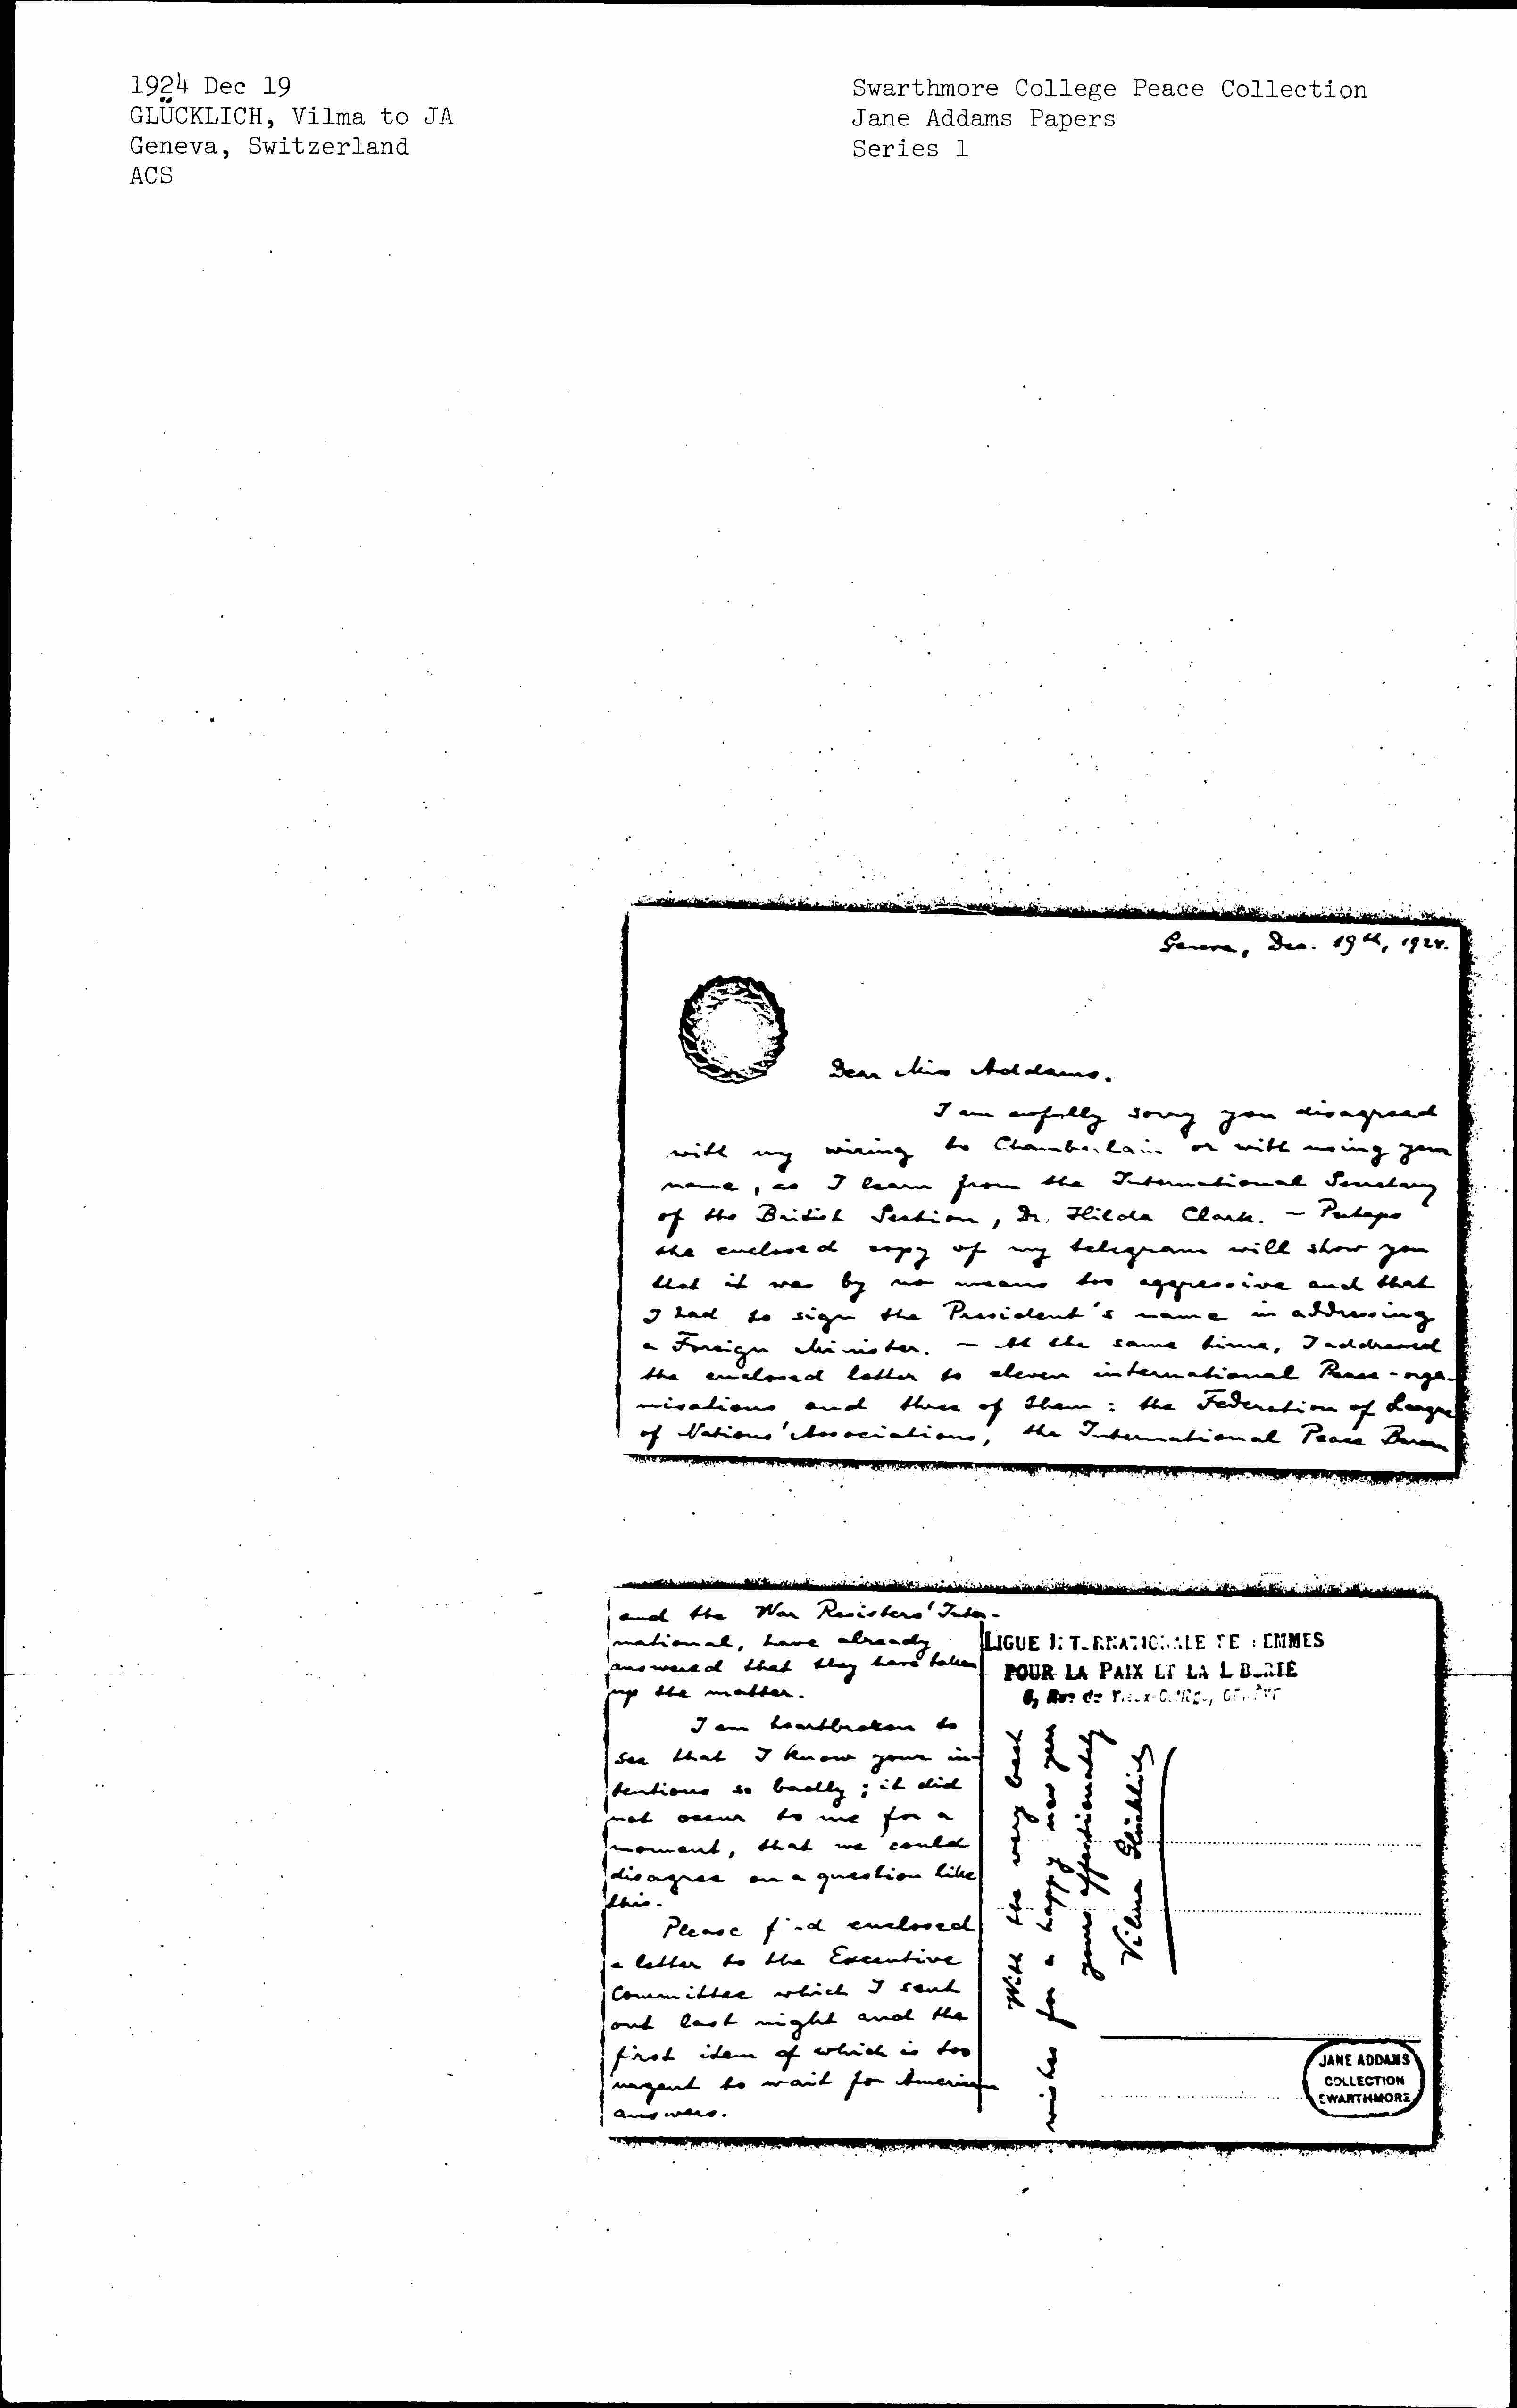 1924 Dec 19
GLÜCKLICH, Vilma to JA
Geneva, Switzerland
ACS
Swarthmore College Peace Collection
Jane Addams Papers
Series 1
Geneva, Dec. 19th, 1924.
Dear Miss Addams.
I am awfully sorry you disagreed
with my wiring to Chamberlain or with using your
name, as I learn from the International Secretary
of the British Section, Dr. Hilda Clark. — Perhaps
the enclosed copy of my telegram will show you
that it was by no means too aggressive and that
I had to sign the President's name in addressing
a Foreign Minister. — At the same time, I addressed
the enclosed letter to eleven international Peace-orga-
nisations and three of them: the Federation of League
of Nations' Associations, the International Peace Bureau
and the War Resisters' Inter-
national, have already
answered that they have taken
up the matter.
I am heartbroken to
see that I know your in-
tentions so badly; it did
not occur to me for a
moment, that we could
disagree on a question like
this.
Please find enclosed
a letter to the Executive
Committee which I sent
out last night and the
first item of which is too
urgent to wait for American
answers.
LIGUE INTERNATIONALE DE FEMMES
POUR LA PAIX ET LA LIBERTÉ
6, Rue du Vieux-Collège, GENÈVE
With the very best
wishes for a happy new year
yours affectionately
Vilma Glücklich
JANE ADDAMS
COLLECTION
SWARTHMORE